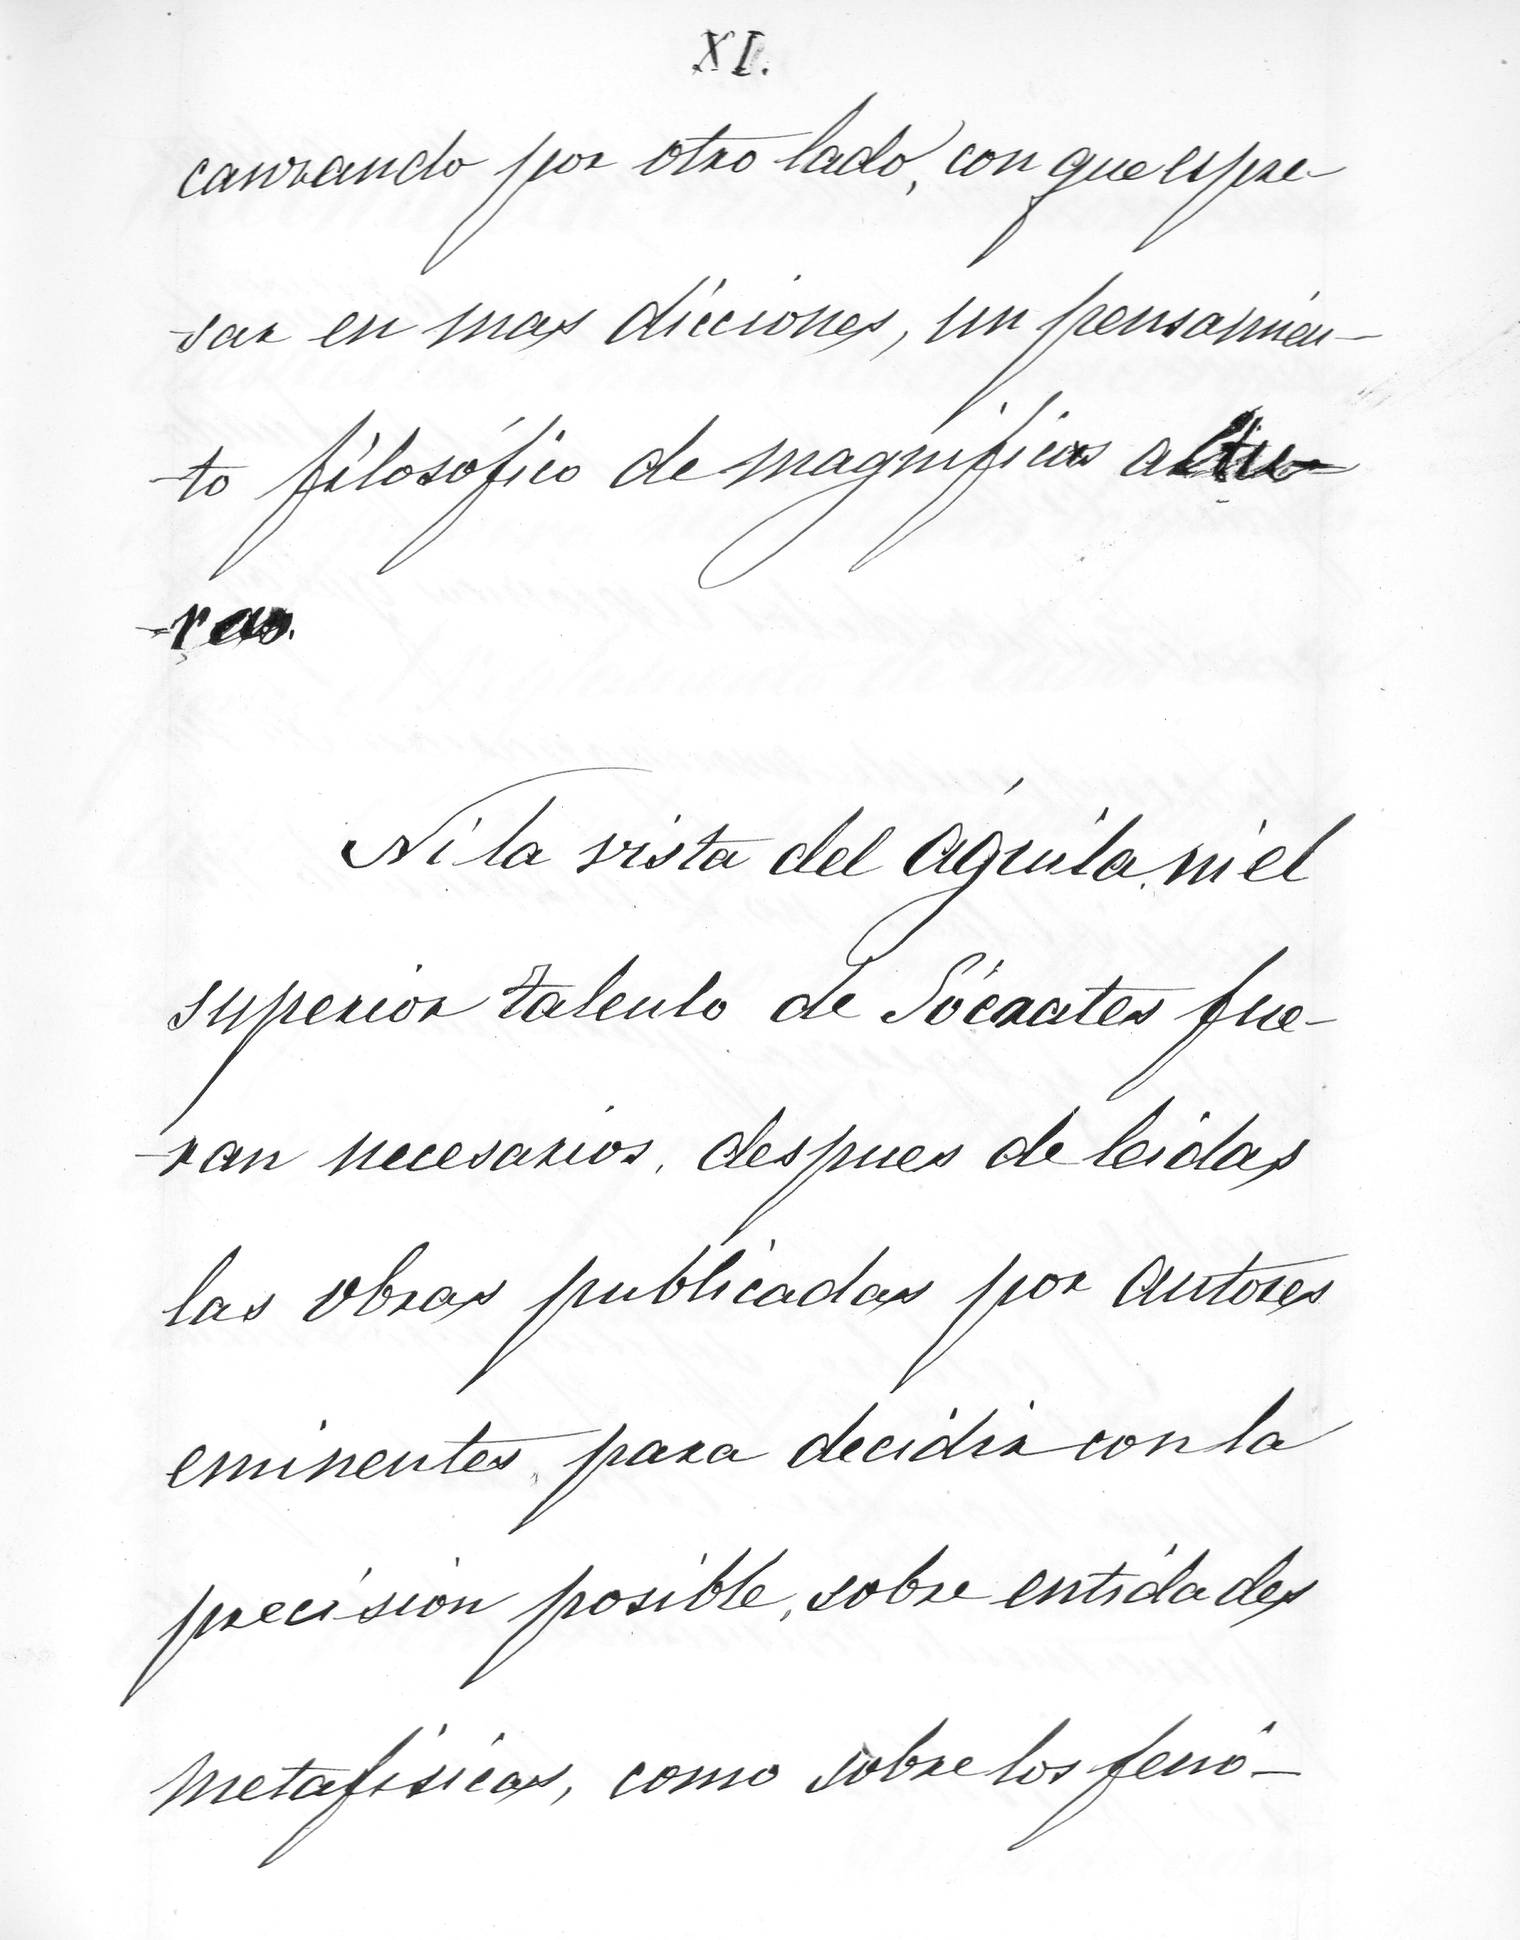 XI.
canzando por otro lado, con que espre-
-sar en mas dicciones, un pensamien-
-to filosófico de magnificas altu-
-ras.
Ni la vista del águila, ni el
superior talento de Sócrates fue-
-ran necesarios, despues de leidas
las obras publicadas por autores
eminentes, para decidir con la
precision posible, sobre entidades
metafisicas, como sobre los fenó-